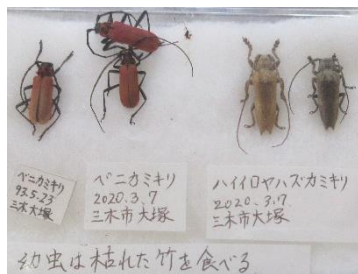 ベニカミキリ
93.5.23
三木大塚
ベニカミキリ
2020.3.7
三木市大塚
ハイイロヤハズカミキリ
2020.3.7.
三木市大塚
幼虫は枯れた竹を食べる